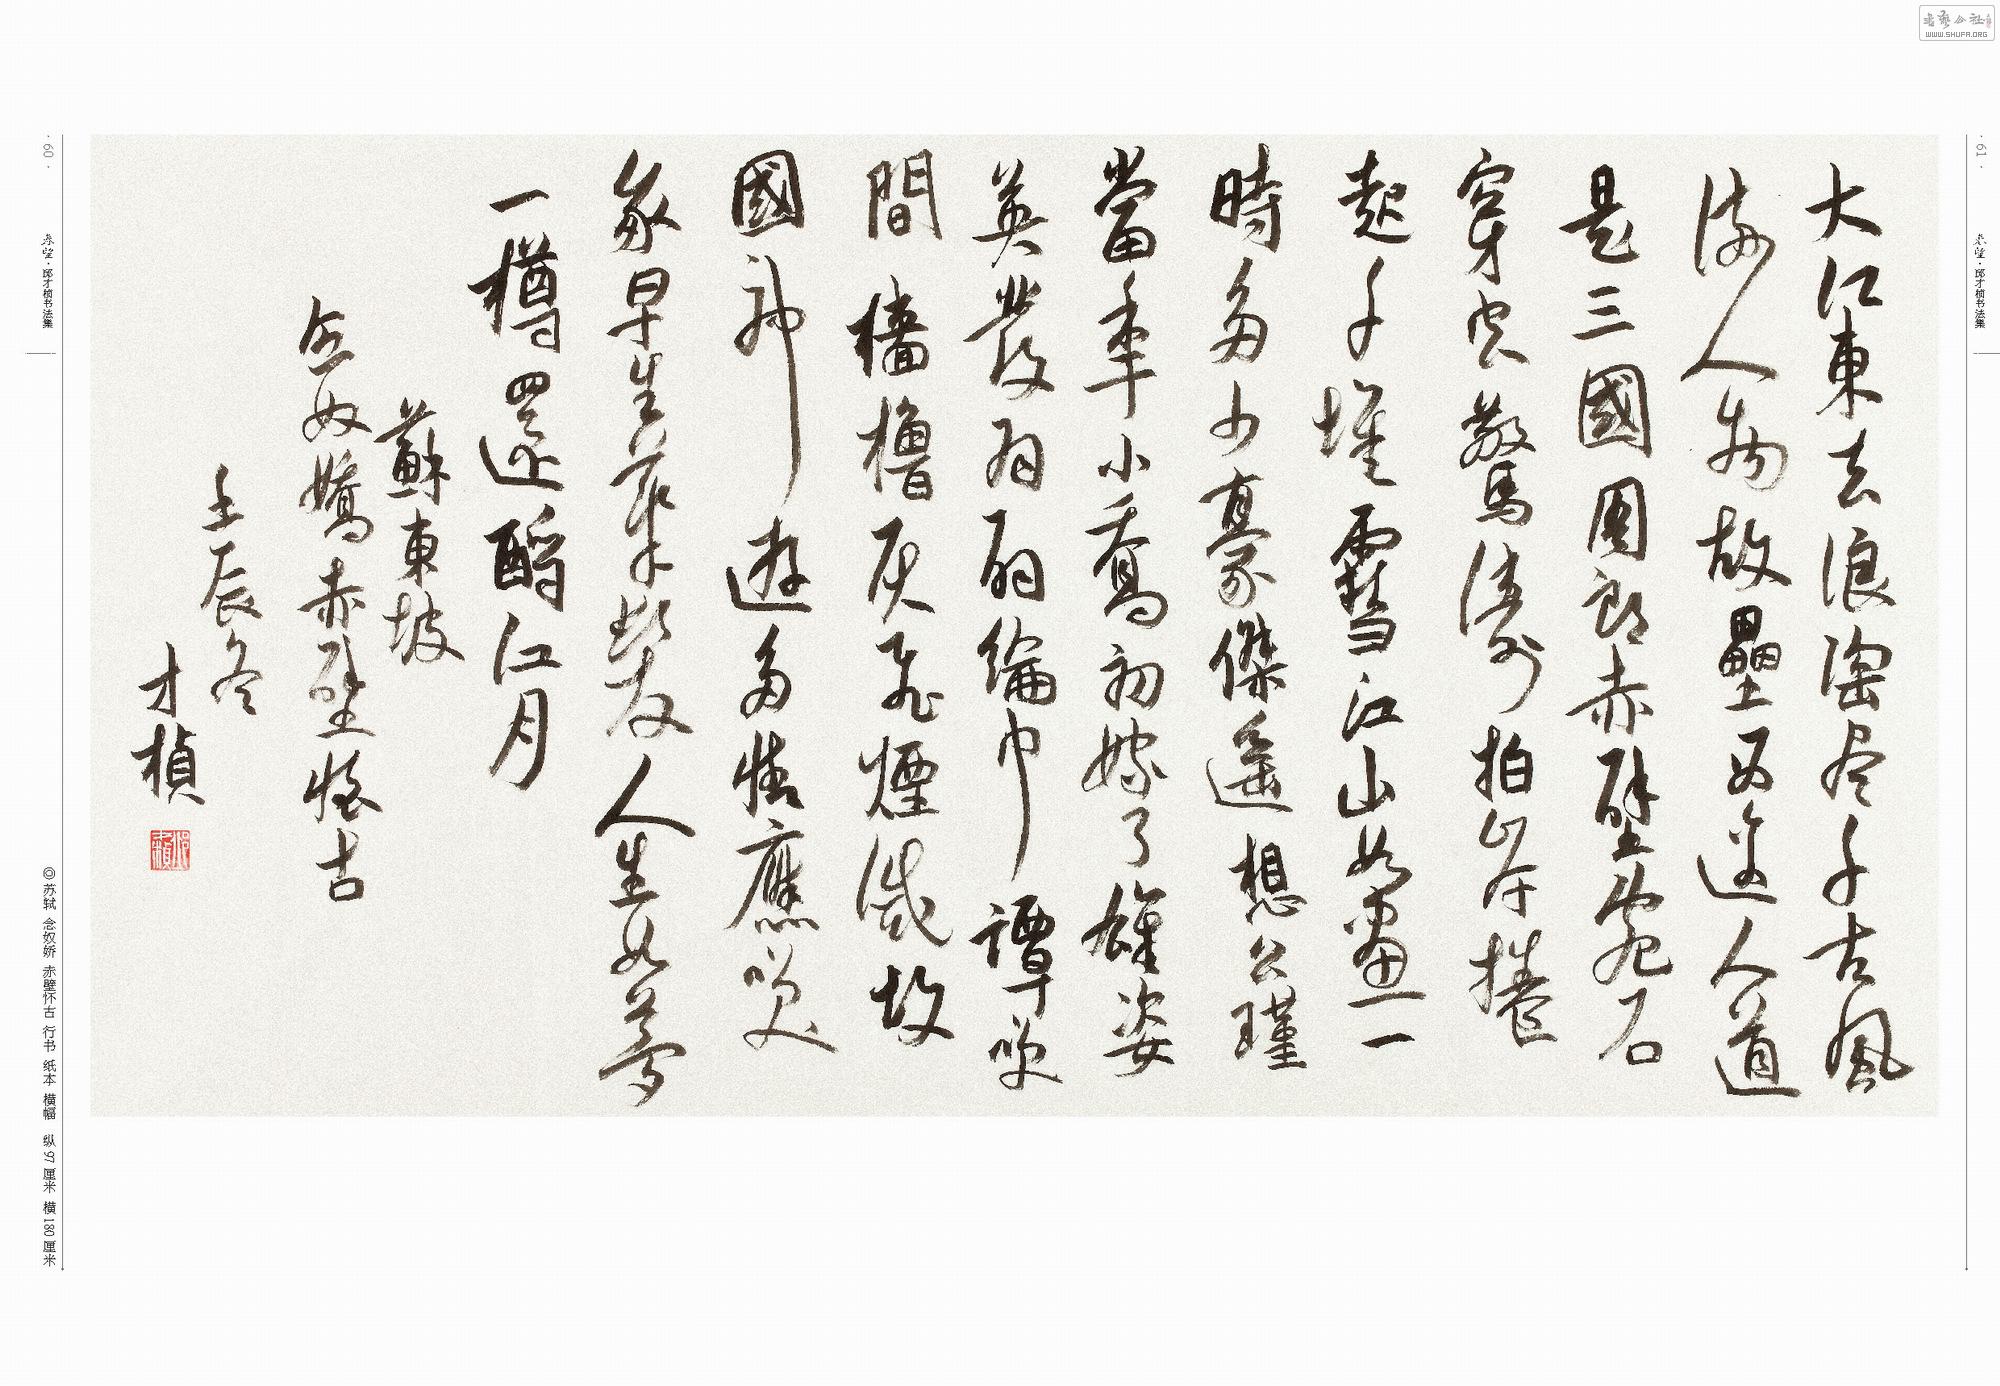 大江東去浪淘尽千古風
流人物故壘西邊人道
是三國周郎赤壁亂石
穿空驚濤拍岸捲
起千堆雪江山如畫一
時多少豪傑遥想公瑾
當年小喬初嫁了雄姿
英發羽扇綸巾譚笑
間檣櫓灰飛煙滅故
國神遊多情應笑
我早生華髮人生如夢
一樽還酹江月
蘇東坡
念奴嬌赤壁懷古
壬辰冬
才楨
·60·
邱才桢书法集
◎苏轼 念奴娇 赤壁怀古 行书 纸本 横幅 纵97厘米 横180厘米
·61·
邱才桢书法集
书艺公社
WWW.SHUFA.ORG